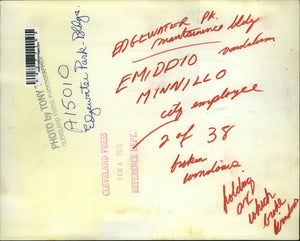 EDGEWATER PK.
maintenance bldg
vandalism
EMIDDIO
MINNILLO
city employee
2 of 38
broken
windows
holding
axe
which
broke
windows
A15010
Edgewater Park-Bldgs.
PHOTO BY TONY
CLEVELAND PRESS PHOTOGRAPHER
CLEVELAND PRESS
FEB 4 1975
REFERENCE DEPT.